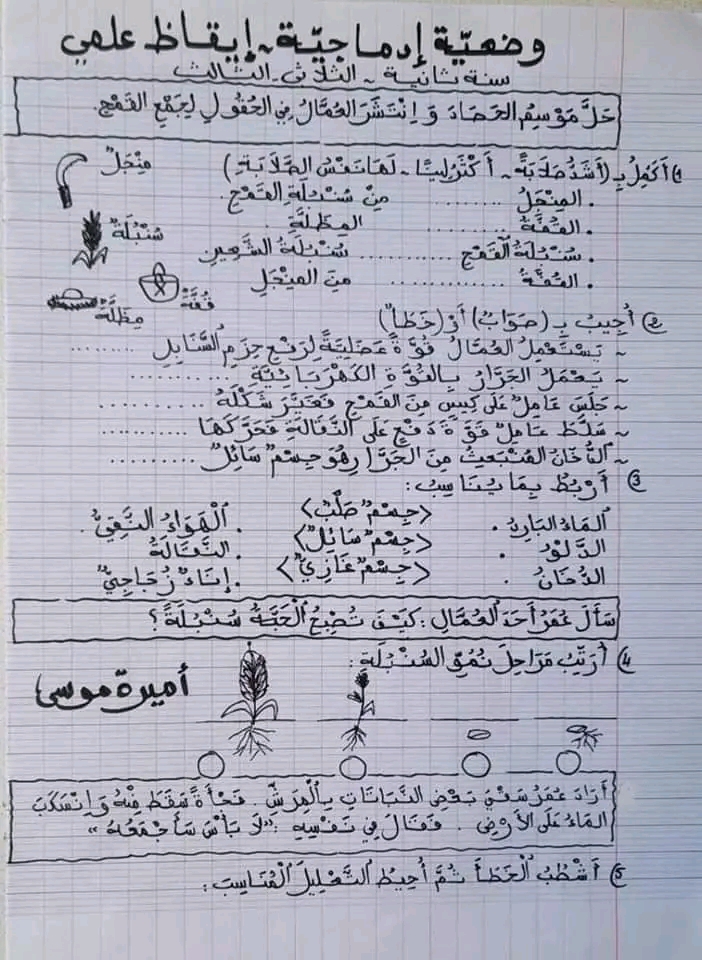 وضعيّة إدماجيّة - إيقاظ علمي
سنة ثانية - الثلاثي الثالث
حَلَّ مَوْسِمُ الحَصَادِ وَ انْتَشَرَ العُمَّالُ فِي الحُقُولِ لِجَمْعِ القَمْحِ.
1) أُكْمِلُ بِـ (أَشَدُّ صَلَابَةً - أَكْثَرُ لِينًا - لَهَا نَفْسُ الصَّلَابَةِ)
مِنْجَلٌ
. المِنْجَلُ ......... مِنْ سُنْبُلَةِ القَمْحِ.
. القُفَّةُ ......... المِظَلَّةِ.
سُنْبُلَةٌ
. سُنْبُلَةُ القَمْحِ ............ سُنْبُلَةُ الشَّعِيرِ
. القُفَّةُ ............ مِنَ المِنْجَلِ
قُفَّةٌ
مِظَلَّةٌ
2) أُجِيبُ بِـ (صَوَابٌ) أَوْ (خَطَأٌ)
~ يَسْتَعْمِلُ العُمَّالُ قُوَّةً عَضَلِيَّةً لِرَفْعِ حِزَمِ السَّنَابِلِ .........
~ يَعْمَلُ الجَرَّارُ بِالقُوَّةِ الكَهْرَبَائِيَّةِ ..........
~ جَلَسَ عَامِلٌ عَلَى كِيسٍ مِنَ القَمْحِ فَتَغَيَّرَ شَكْلُهُ ..........
~ سَلَّطَ عَامِلٌ قُوَّةَ دَفْعٍ عَلَى النَّقَّالَةِ فَحَرَّكَهَا ..........
~ الدُّخَانُ المُنْبَعِثُ مِنَ الجَرَّارِ هُوَ جِسْمٌ سَائِلٌ .........
3) أَرْبِطُ بِمَا يُنَاسِبُ:
المَاءُ البَارِدُ . <جِسْمٌ صَلْبٌ> . الهَوَاءُ النَّقِيُّ
الدَّلْوُ . <جِسْمٌ سَائِلٌ> . النَّقَّالَةُ
الدُّخَانُ . <جِسْمٌ غَازِيٌّ> . إِنَاءٌ زُجَاجِيٌّ
سَأَلَ عُمَرُ أَحَدَ العُمَّالِ: كَيْفَ تُصْبِحُ الحَبَّةُ سُنْبُلَةً؟
4) أُرَتِّبُ مَرَاحِلَ نُمُوِّ السُّنْبُلَةِ:
أميرة موسى
أَرَادَ عُمَرُ سَقْيَ بَعْضِ النَّبَاتَاتِ بِالمِرَشِّ. فَجْأَةً سَقَطَ مِنْهُ وَ انْسَكَبَ
المَاءُ عَلَى الأَرْضِ. فَقَالَ فِي نَفْسِهِ: "لَا بَأْسَ سَأَجْمَعُهُ"
5) أَشْطُبُ الخَطَأَ ثُمَّ أُحِيطُ التَّعْلِيلَ المُنَاسِبَ: